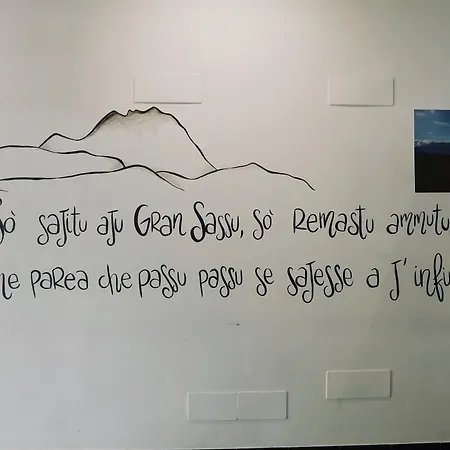 So' sajitu aju Gran Sassu, so' remastu ammutu
me parea che passu passu se sajesse a j'infi